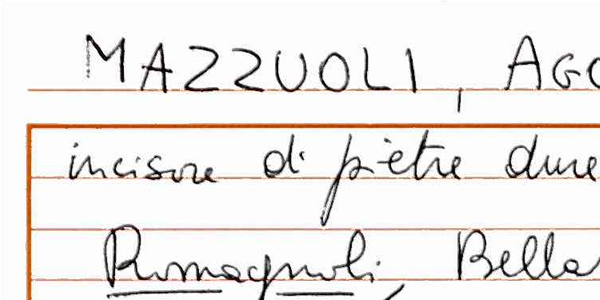 MAZZUOLI, AGO
incisore di pietre dure
Romagnoli, Bella